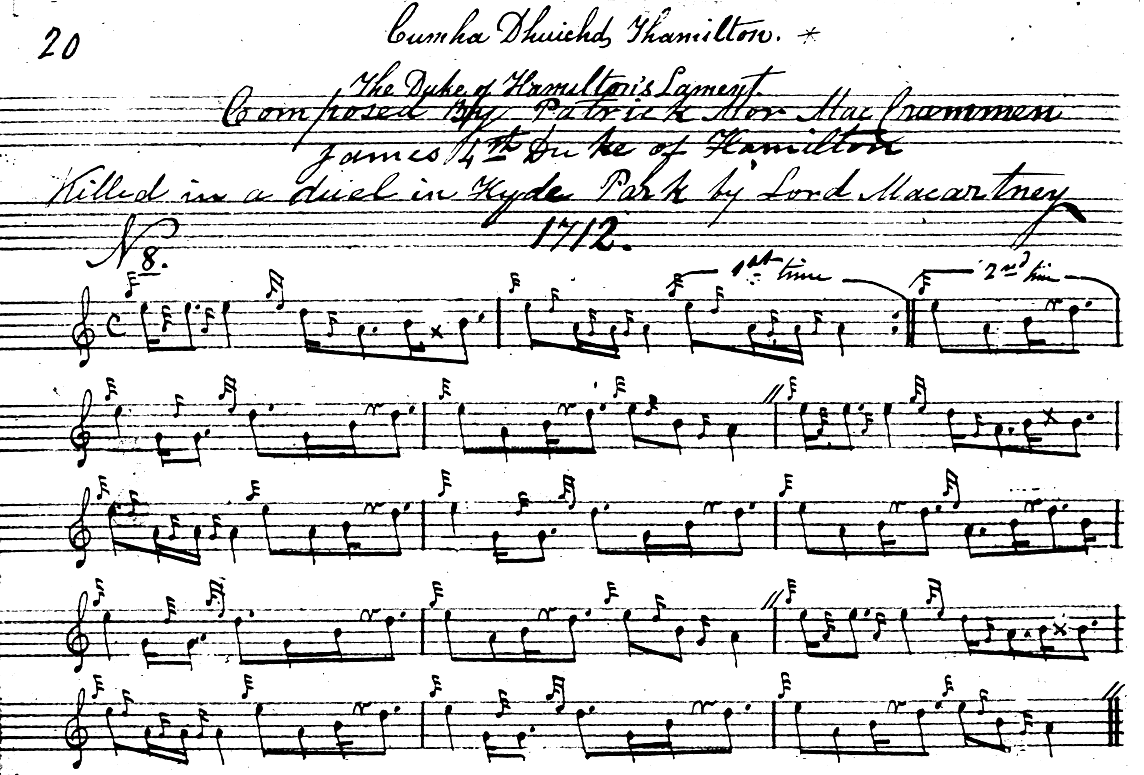 20
Cumha Dhuichd Thamilton. *
The Duke of Hamilton's Lament.
Composed By Patrick Mor MacCrummen
James 4th Duke of Hamilton
Killed in a duel in Hyde Park by Lord Macartney
1712.
No 8.
1st time
2nd time